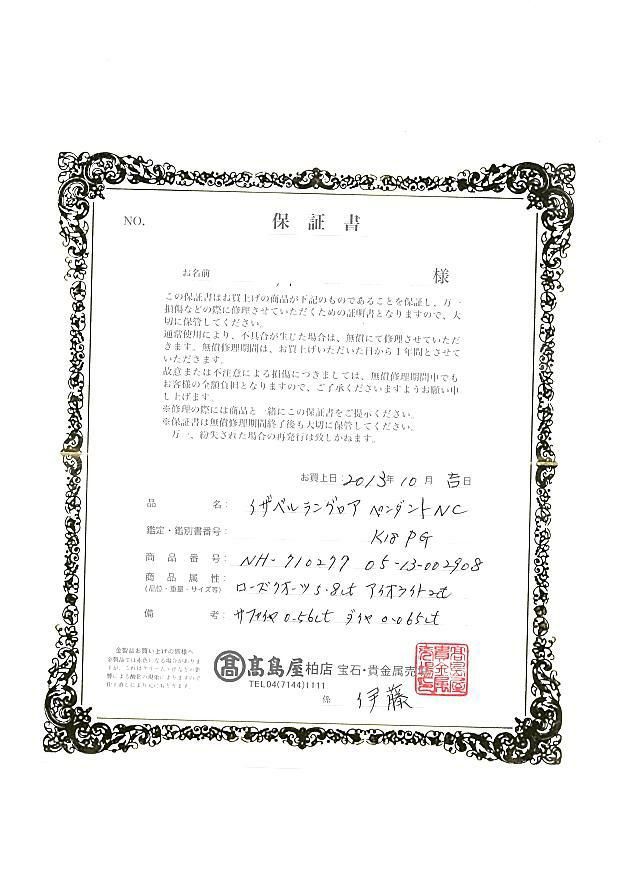 NO.
保証書
お名前 様
この保証書はお買上げの商品が下記のものであることを保証し、万一
損傷などの際に修理させていただくための証明書となりますので、大
切に保管してください。
通常使用により、不具合が生じた場合は、無償にて修理させていただ
きます。無償修理期間は、お買上げいただいた日から1年間とさせて
いただきます。
故意または不注意による損傷につきましては、無償修理期間中でも
お客様の全額負担となりますので、ご了承くださいますようお願い申
し上げます。
※修理の際には商品と一緒にこの保証書をご提示ください。
※保証書は無償修理期間終了後も大切に保管してください。
万一、紛失された場合の再発行は致しかねます。
お買上日:2013年10月吉日
品名:イザベルラングロア ペンダントNC
鑑定・鑑別書番号: K18PG
商品番号:NH-710277 05-13-002908
商品属性:ローズクオーツ5.8ct アイオライト2ct
(品位・重量・サイズ等)
備考:サファイヤ0.56ct ダイヤ0.065ct
金製品お買い上げの皆様へ
高 髙島屋柏店 宝石・貴金属売
TEL04(7144)1111
係 伊藤